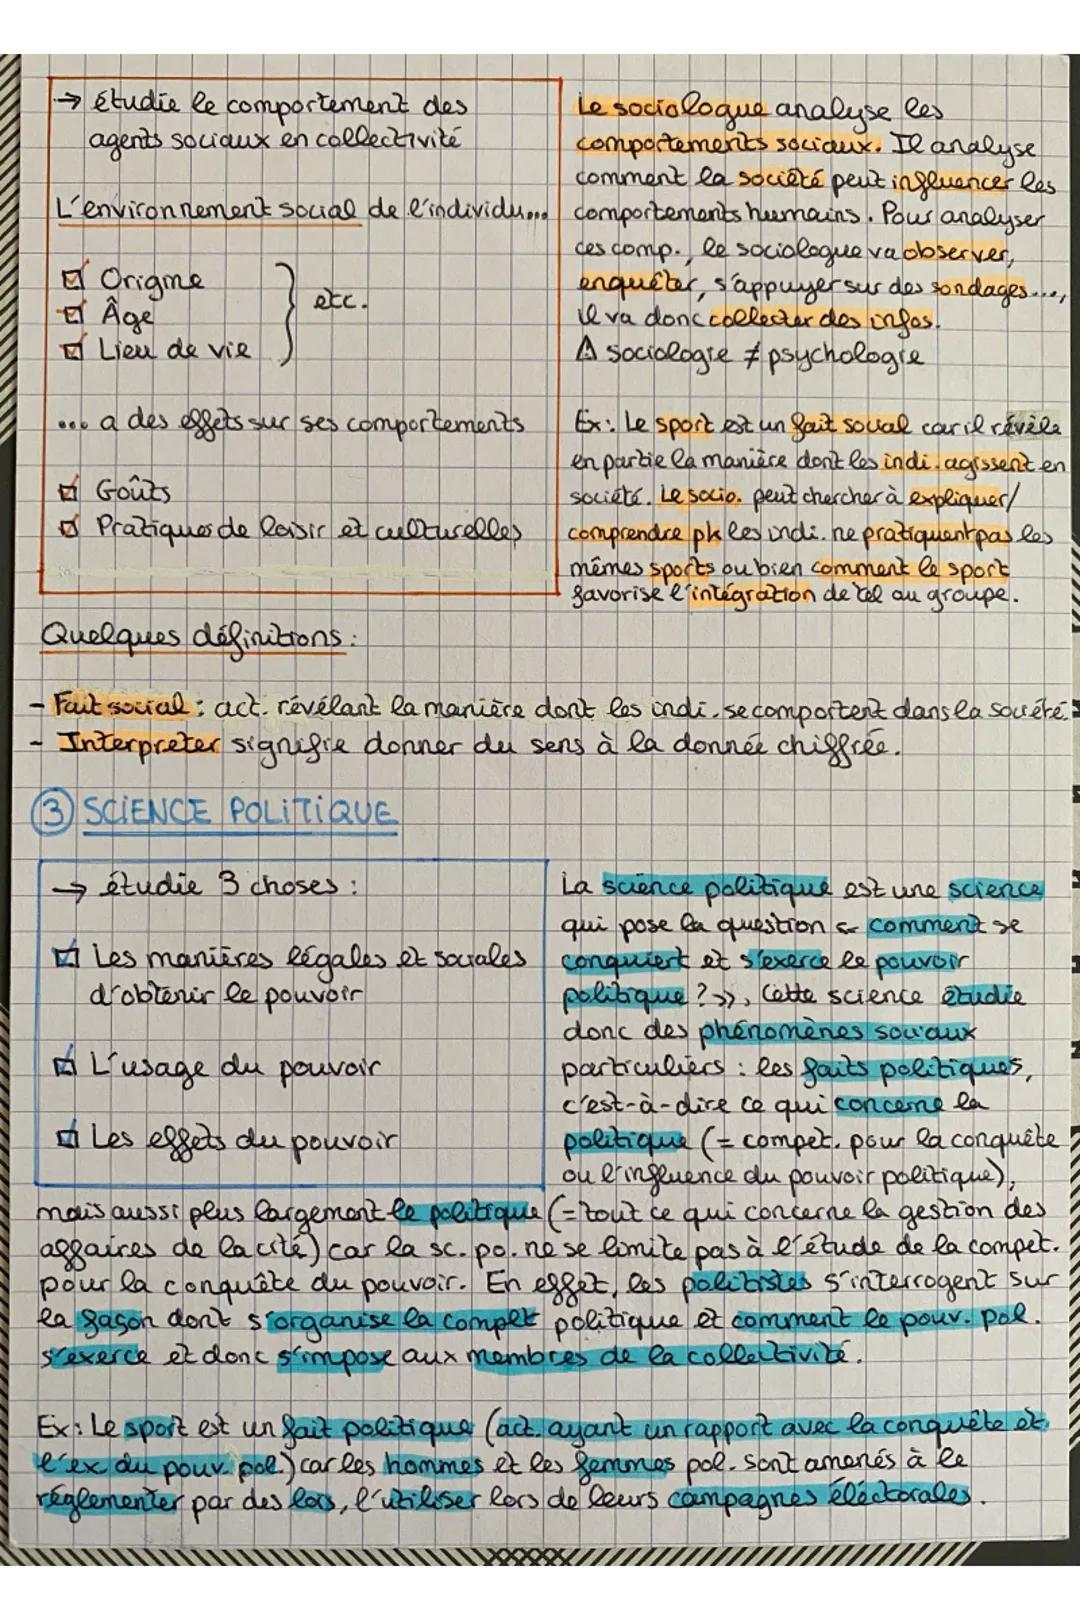 → étudie le comportement des
agents sociaux en collectivité
L'environnement social de l'individu...
Origine
Âge
Lieu de vie
etc.
... a des effets sur ses comportements
Goûts
Pratiques de loisir et culturelles
Le sociologue analyse les
comportements sociaux. Il analyse
comment la société peut influencer les
comportements humains. Pour analyser
ces comp., le sociologue va observer,
enquêter, s'appuyer sur des sondages...,
il va donc collecter des infos.
⚠ sociologie ≠ psychologie
Ex: Le sport est un fait social car il révèle
en partie la manière dont les indi. agissent en
société. Le socio. peut chercher à expliquer/
comprendre pk les indi. ne pratiquent pas les
mêmes sports ou bien comment le sport
favorise l'intégration de tel ou groupe.
Quelques définitions:
- Fait social: act. révélant la manière dont les indi. se comportent dans la société.
- Interpreter signifie donner du sens à la donnée chiffrée.
③ SCIENCE POLITIQUE
→ étudie 3 choses:
Les manières légales et sociales
d'obtenir le pouvoir
L'usage du pouvoir
Les effets du pouvoir
La science politique est une science
qui pose la question « comment se
conquiert et s'exerce le pouvoir
politique? », Cette science étudie
donc des phénomènes sociaux
particuliers: les faits politiques,
c'est-à-dire ce qui concerne la
politique (= compet. pour la conquête
ou l'influence du pouvoir politique),
mais aussi plus largement le politique (= tout ce qui concerne la gestion des
affaires de la cité) car la sc. po. ne se limite pas à l'étude de la compet.
pour la conquête du pouvoir. En effet, les politistes s'interrogent sur
la façon dont s'organise la compet politique et comment le pouv. pol.
s'exerce et donc s'impose aux membres de la collectivité.
Ex: Le sport est un fait politique (act. ayant un rapport avec la conquête et
l'ex. du pouv. pol.) car les hommes et les femmes pol. sont amenés à le
réglementer par des lois, l'utiliser lors de leurs campagnes éléctorales.